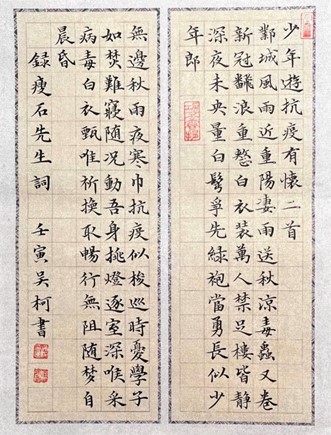 少年遊抗疫有懷二首
鄴城風雨近重陽凄雨送秋涼毒蟲又卷
新冠飜浪重整白衣裝萬人禁足樓皆靜
深夜未央量白髩孚先綠袍當勇長似少
年郎
無邊秋雨夜寒巾抗疫似梭巡時憂學子
如焚難寢隨況動吾身挑燈逐室深喉采
病毒白衣甄唯祈換取暢行無阻隨梦自
晨昏
録瘦石先生詞 壬寅吳柯書